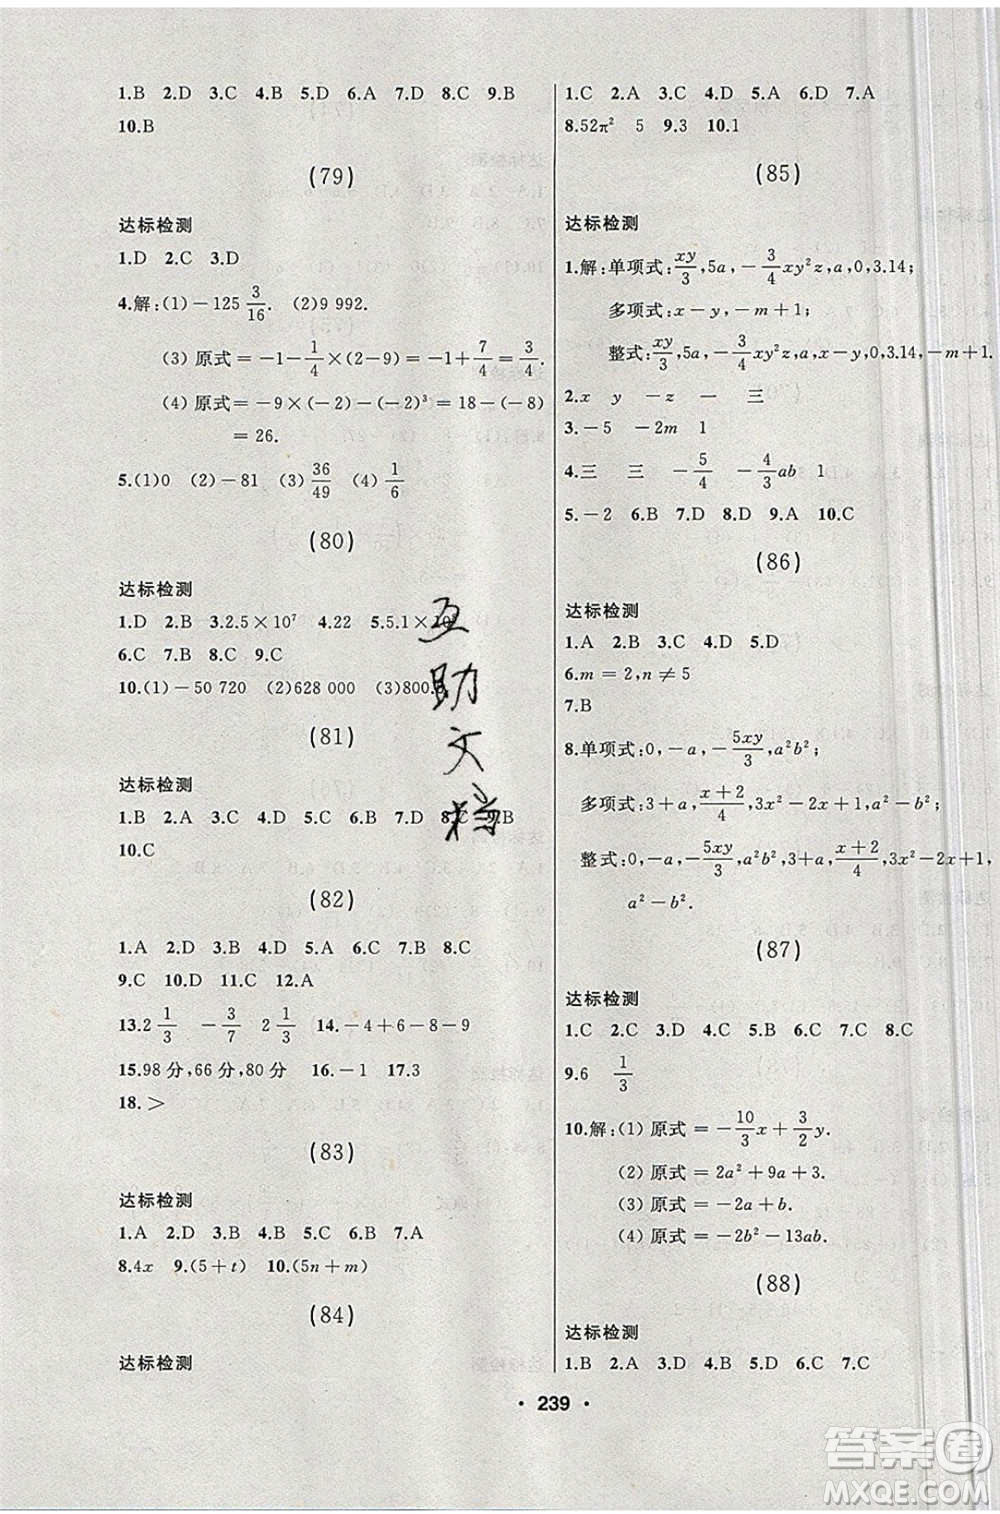 1.B 2.D 3.C 4.B 5.D 6.A 7.D 8.C 9.B
10.B
(79)
达标检测
1.D 2.C 3.D
4.解:(1)-125 3/16. (2)9 992.
(3) 原式=-1-1/4×(2-9)=-1+7/4=3/4.
(4) 原式=-9×(-2)-(-2)³=18-(-8)
=26.
5.(1)0 (2)-81 (3)36/49 (4)1/6
(80)
达标检测
1.D 2.B 3.2.5×10⁷ 4.22 5.5.1×10
6.C 7.B 8.C 9.C
10.(1)-50 720 (2)628 000 (3)800.
(81)
达标检测
1.B 2.A 3.D 4.A 5.C 6.B 7.D 8.C 9.B
10.C
(82)
1.A 2.D 3.B 4.D 5.A 6.C 7.B 8.C
9.C 10.D 11.C 12.A
13.2 1/3 -3/7 2 1/3 14.-4+6-8-9
15.98分,66分,80分 16.-1 17.3
18.>
(83)
达标检测
1.A 2.D 3.B 4.B 5.D 6.B 7.A
8.4x 9.(5+t) 10.(5n+m)
(84)
达标检测
1.C 2.A 3.C 4.D 5.A 6.D 7.A
8.52π² 5 9.3 10.1
(85)
达标检测
1.解:单项式:xy/3,5a,-3/4xy²z,a,0,3.14;
多项式:x-y,-m+1;
整式:xy/3,5a,-3/4xy²z,a,x-y,0,3.14,-m+1.
2.x y -z 一 三
3.-5 -2m 1
4.三 三 -5/4 -4/3ab 1
5.-2 6.B 7.D 8.D 9.A 10.C
(86)
达标检测
1.A 2.B 3.C 4.D 5.D
6.m=2,n≠5
7.B
8.单项式:0,-a,-5xy/3,a²b²;
多项式:3+a,x+2/4,3x²-2x+1,a²-b²;
整式:0,-a,-5xy/3,a²b²,3+a,x+2/4,3x²-2x+1,
a²-b².
(87)
达标检测
1.C 2.C 3.A 4.C 5.B 6.C 7.C 8.C
9.6 1/3
10.解:(1) 原式=-10/3x+3/2y.
(2) 原式=2a²+9a+3.
(3) 原式=-2a+b.
(4) 原式=-2b²-13ab.
(88)
达标检测
1.B 2.A 3.D 4.A 5.D 6.C 7.C
互
助
文
档
· 239 ·
答案圈
MXQE.COM